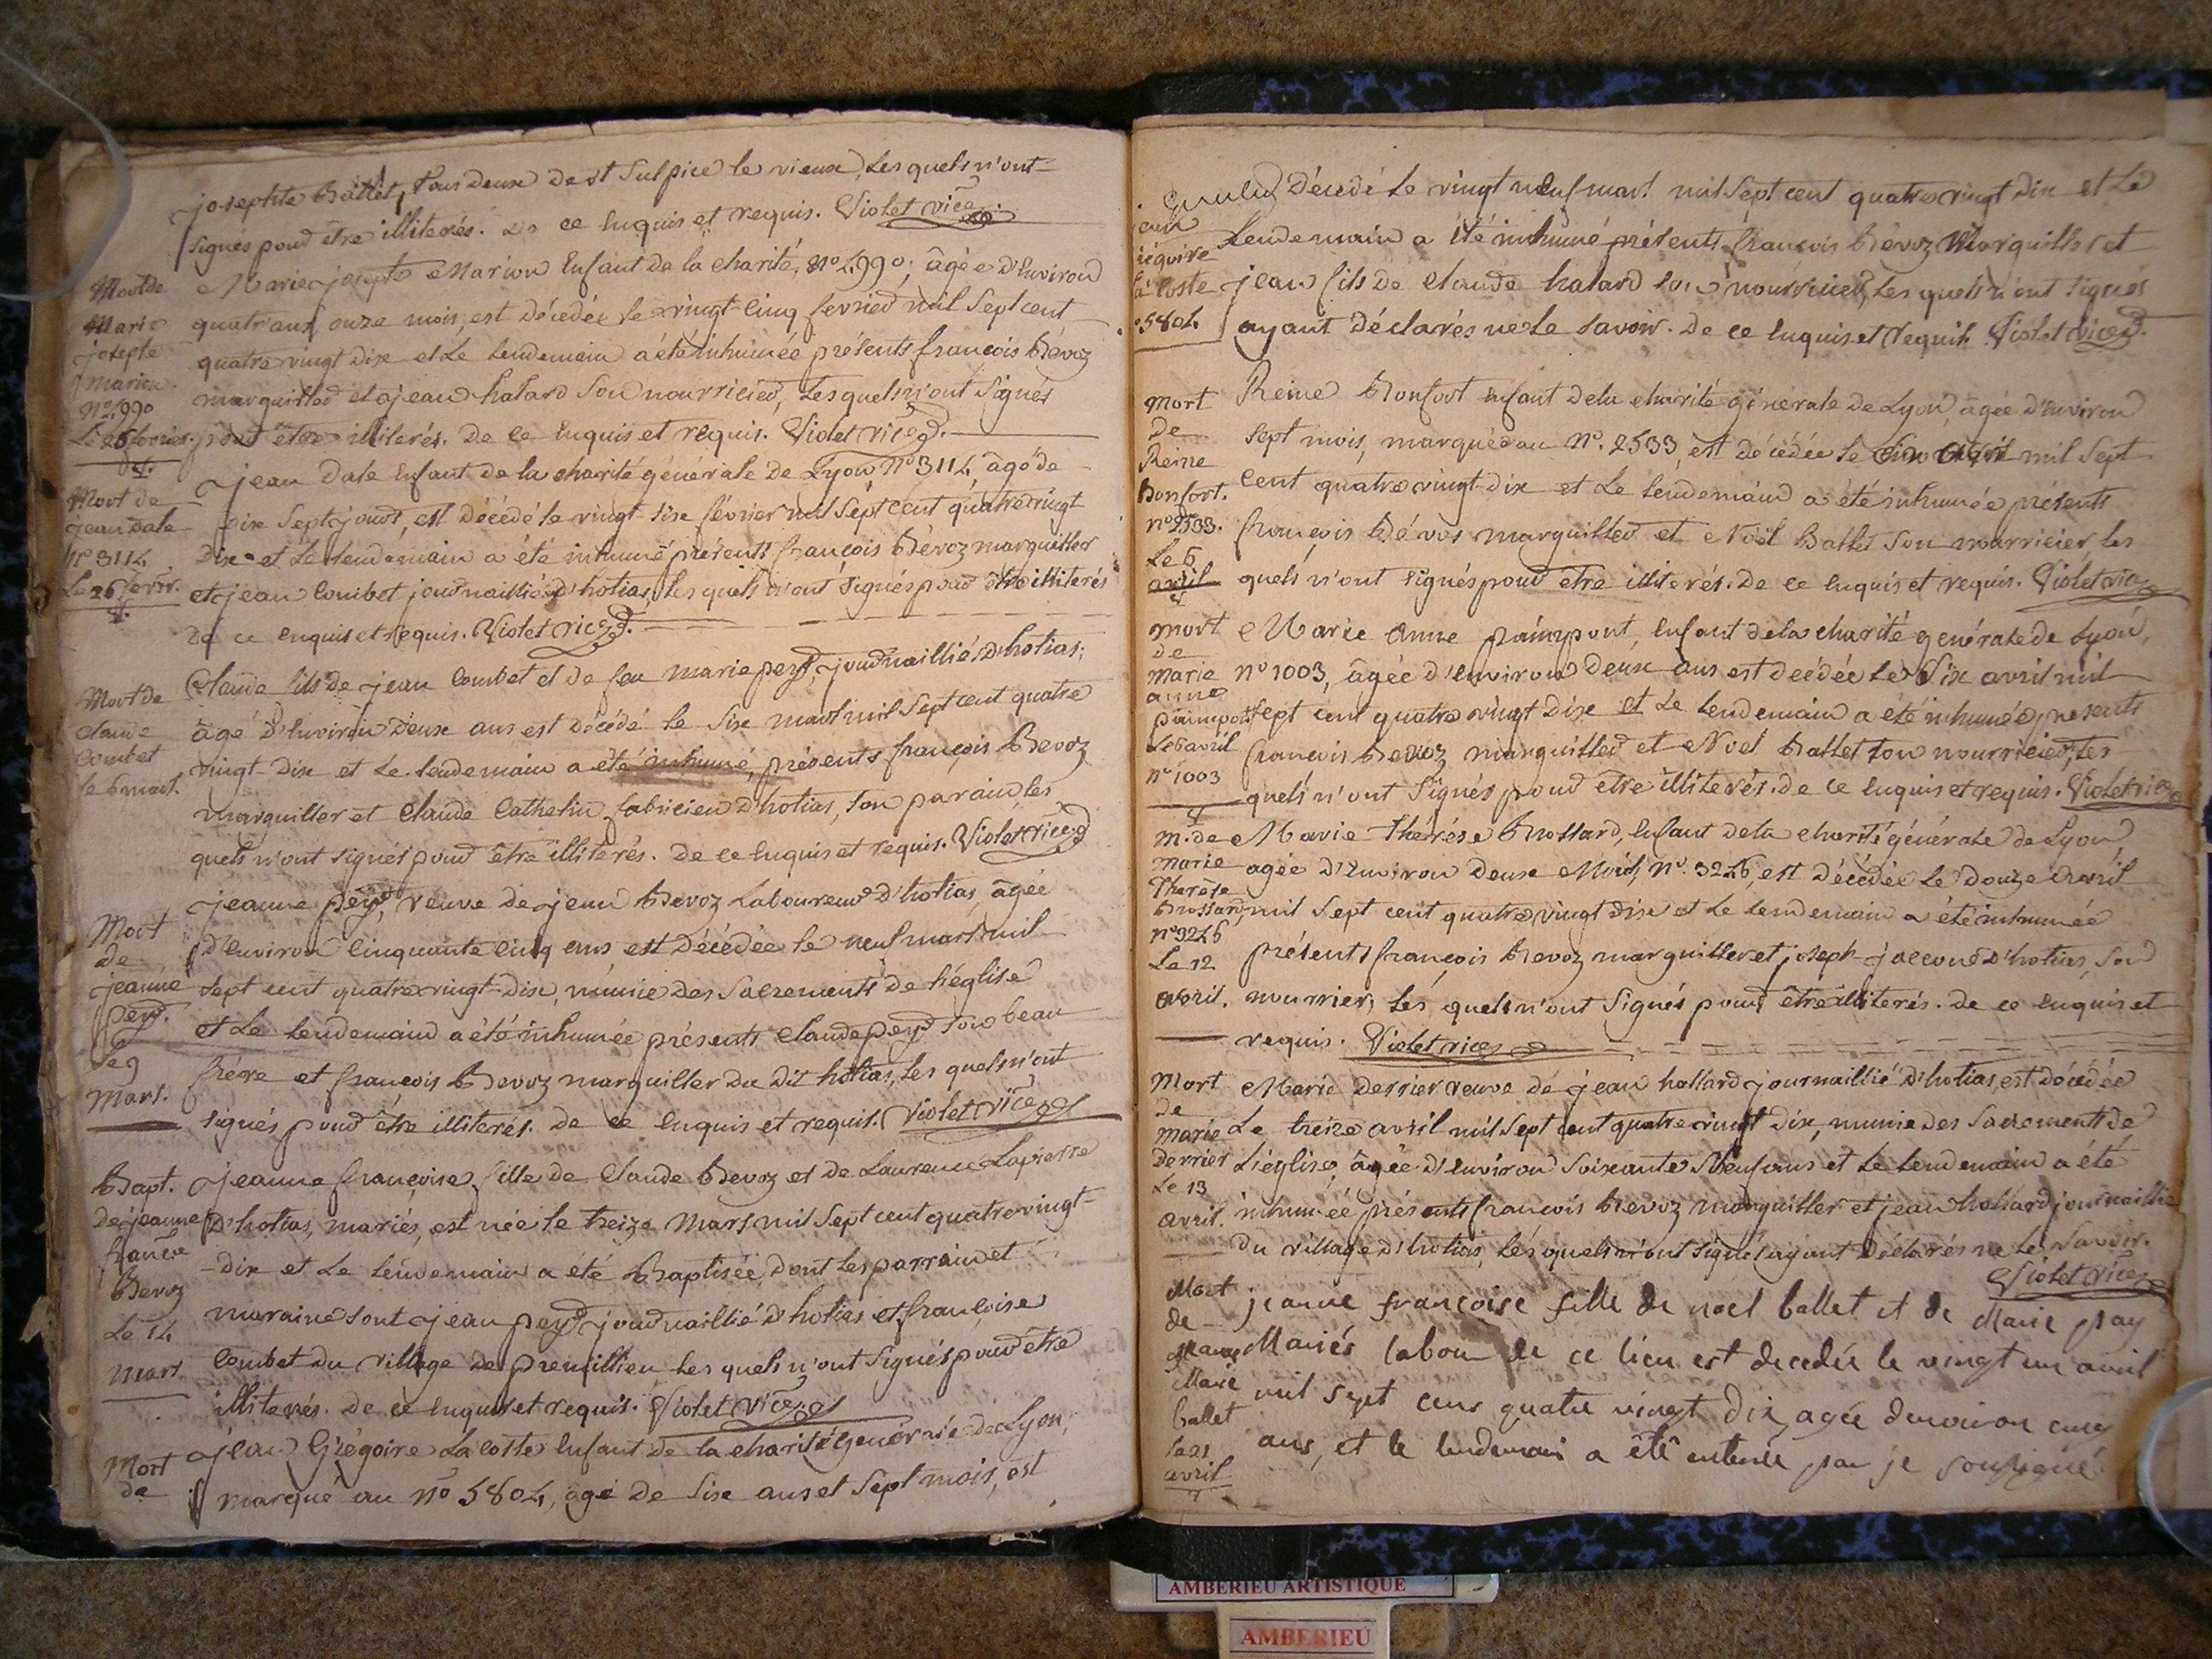 josephte Ballet, tous deux de st Sulpice le vieux, Les quels n'ont
signés pour être illiterés. De ce Enquis et requis. Violet vice
Mort de
Marie
josepte
marion.
No 4990
Le 25 fevrier.
Marie josepte Marion Enfant de la charité, No 4990, âgée d'Environ
quatr'ans, onze mois, est décédée le vingt-cinq fevrier mil Sept cent
quatre vingt dix et Le Lendemain a été inhumée présents françois Bévoz
marguiller et jean hatard Son nourricier, Les quels n'ont Signés
pour être illiterés. De ce Enquis et requis. Violet vice
Mort de
jean Date
No 3114
Le 26 fevr.
jean Date Enfant de la charité générale de Lyon No 3114, âgé de
Dix Sept jours, est décédé le vingt-six février mil Sept cent quatre vingt
Dix et Le Lendemain a été inhumé présents françois Bévoz marguiller
et jean Combet journaillié d'hotias, Les quels n'ont Signés pour être illiterés
De ce enquis et requis. Violet vice
Mort de
claude
Combet
le 6 mars.
Claude fils de jean Combet et de feu marie peyr. journaillié d'hotias,
âgé d'Environ Deux ans est décédé le Six mars mil Sept cent quatre
vingt-Dix et Le Lendemain a été inhumé, présents françois Bevoz
marguiller et Claude Cathelin fabricien d'hotias, Son parain, Les
quels n'ont signés pour être illiterés. De ce Enquis et requis. Violet vice
Mort
de
jeanne
peyr.
Le 9
Mars.
jeanne peyr, veuve de jean Bevoz Laboureur d'hotias, âgée
d'Environ Cinquante cinq ans est Décédée le neuf mars mil
Sept cent quatre vingt-Dix, munie des Sacrements de l'église
et Le Lendemain a été inhumée présents Claude peyr Son beau
frére et françois Bevoz marguiller Du Dit hotias, Les quels n'ont
signés pour être illiterés. De ce Enquis et requis. Violet vice
Bapt.
De jeanne
franç.e
Bevoz
Le 14
Mars
jeanne françoise fille de Claude Bevoz et de Laurence Lapierre
D'hotias, mariés, est née le treize Mars mil Sept cent quatre vingt-
-dix et Le Lendemain a été Baptisée, dont Les parrain et
maraine sont jean peyr journaillié d'hotias et françoise
Combet du village de premillieu Les quels n'ont Signés pour être
illiterés. De ce Enquis et requis. Violet vice
Mort
de
jean Grégoire La coste Enfant de la charité Générale de Lyon,
marqué au No 5804, âgé de Six ans et Sept mois, est
jean
grégoire
la coste
5804
Décédé Le vingt neuf mars mil Sept cent quatre vingt Dix et Le
Lendemain a été inhumé présents françois Bévoz Marguiller et
jean fils de Claude hatard Son nourricier, Les quels n'ont signés
ayant déclarés ne le savoir. De ce Enquis et requis Violet vice
Mort
de
Reine
Bonfort.
no 2533.
Le 5
avril
Reine Bonfort enfant de la charité générale de Lyon, âgée d'Environ
sept mois, marquée au No. 2533, est décédée le Cinq avril mil Sept
Cent quatre vingt-dix et Le Lendemain a été inhumée présents
françois Bévoz marguiller et Noël Ballet Son nourricier, Les
quels n'ont signés pour etre illiterés. De ce Enquis et requis. Violet vice
Mort
de
Marie
anne
paimpont
Le 6 avril
No 1003
Marie Anne paimpont, Enfant de la charité generale de Lyon,
No 1003, âgée d'Environ Deux ans est décédée Le Six avril mil
Sept cent quatre vingt Dix et Le Lendemain a été inhumée, presents
françois Bevoz marguiller et Noel Ballet Son nourricier, Les
quels n'ont Signés pour etre illiterés. De ce Enquis et requis. Violet vice
M. de
Marie
Therèse
Brossard,
No 3246
Le 12
avril.
Marie Therése Brossard, Enfant de la charité générale de Lyon,
agée d'Environ Deux Mois, No. 3246, est Décédée Le Douze avril
mil Sept cent quatre vingt dix et Le Lendemain a été inhumée
présents françois Bevoz marguiller et joseph jaccoud d'hotias, Son
nourrier, Les quels n'ont Signés pour être illiterés. De ce Enquis et
requis. Violet vice
Mort
de
Marie
Derrier
Le 13
avril.
Marie Derrier veuve de jean hallard journaillié d'hotias, est Décédée
Le treize avril mil Sept cent quatre vingt Dix, munie des Sacrements de
L'église, âgée d'Environ Soixante Neuf ans et Le Lendemain a été
inhumée présents françois Bevoz Marguiller et jean hallard journaillié
Du village d'hotias, Les quels n'ont signés ayant Déclarés ne Le Savoir.
Violet vice
Mort
de
Marie
ballet
Le 21
avril
jeanne françoise fille de noel ballet et de Marie pay
Mariés labour de ce lieu est decedée le vingt un avril
mil sept cens quatre vingt Dix, agée denviron cinq
ans, et le lendemain a été enterrée par je soussigné
AMBERIEU ARTISTIQUE
AMBERIEU